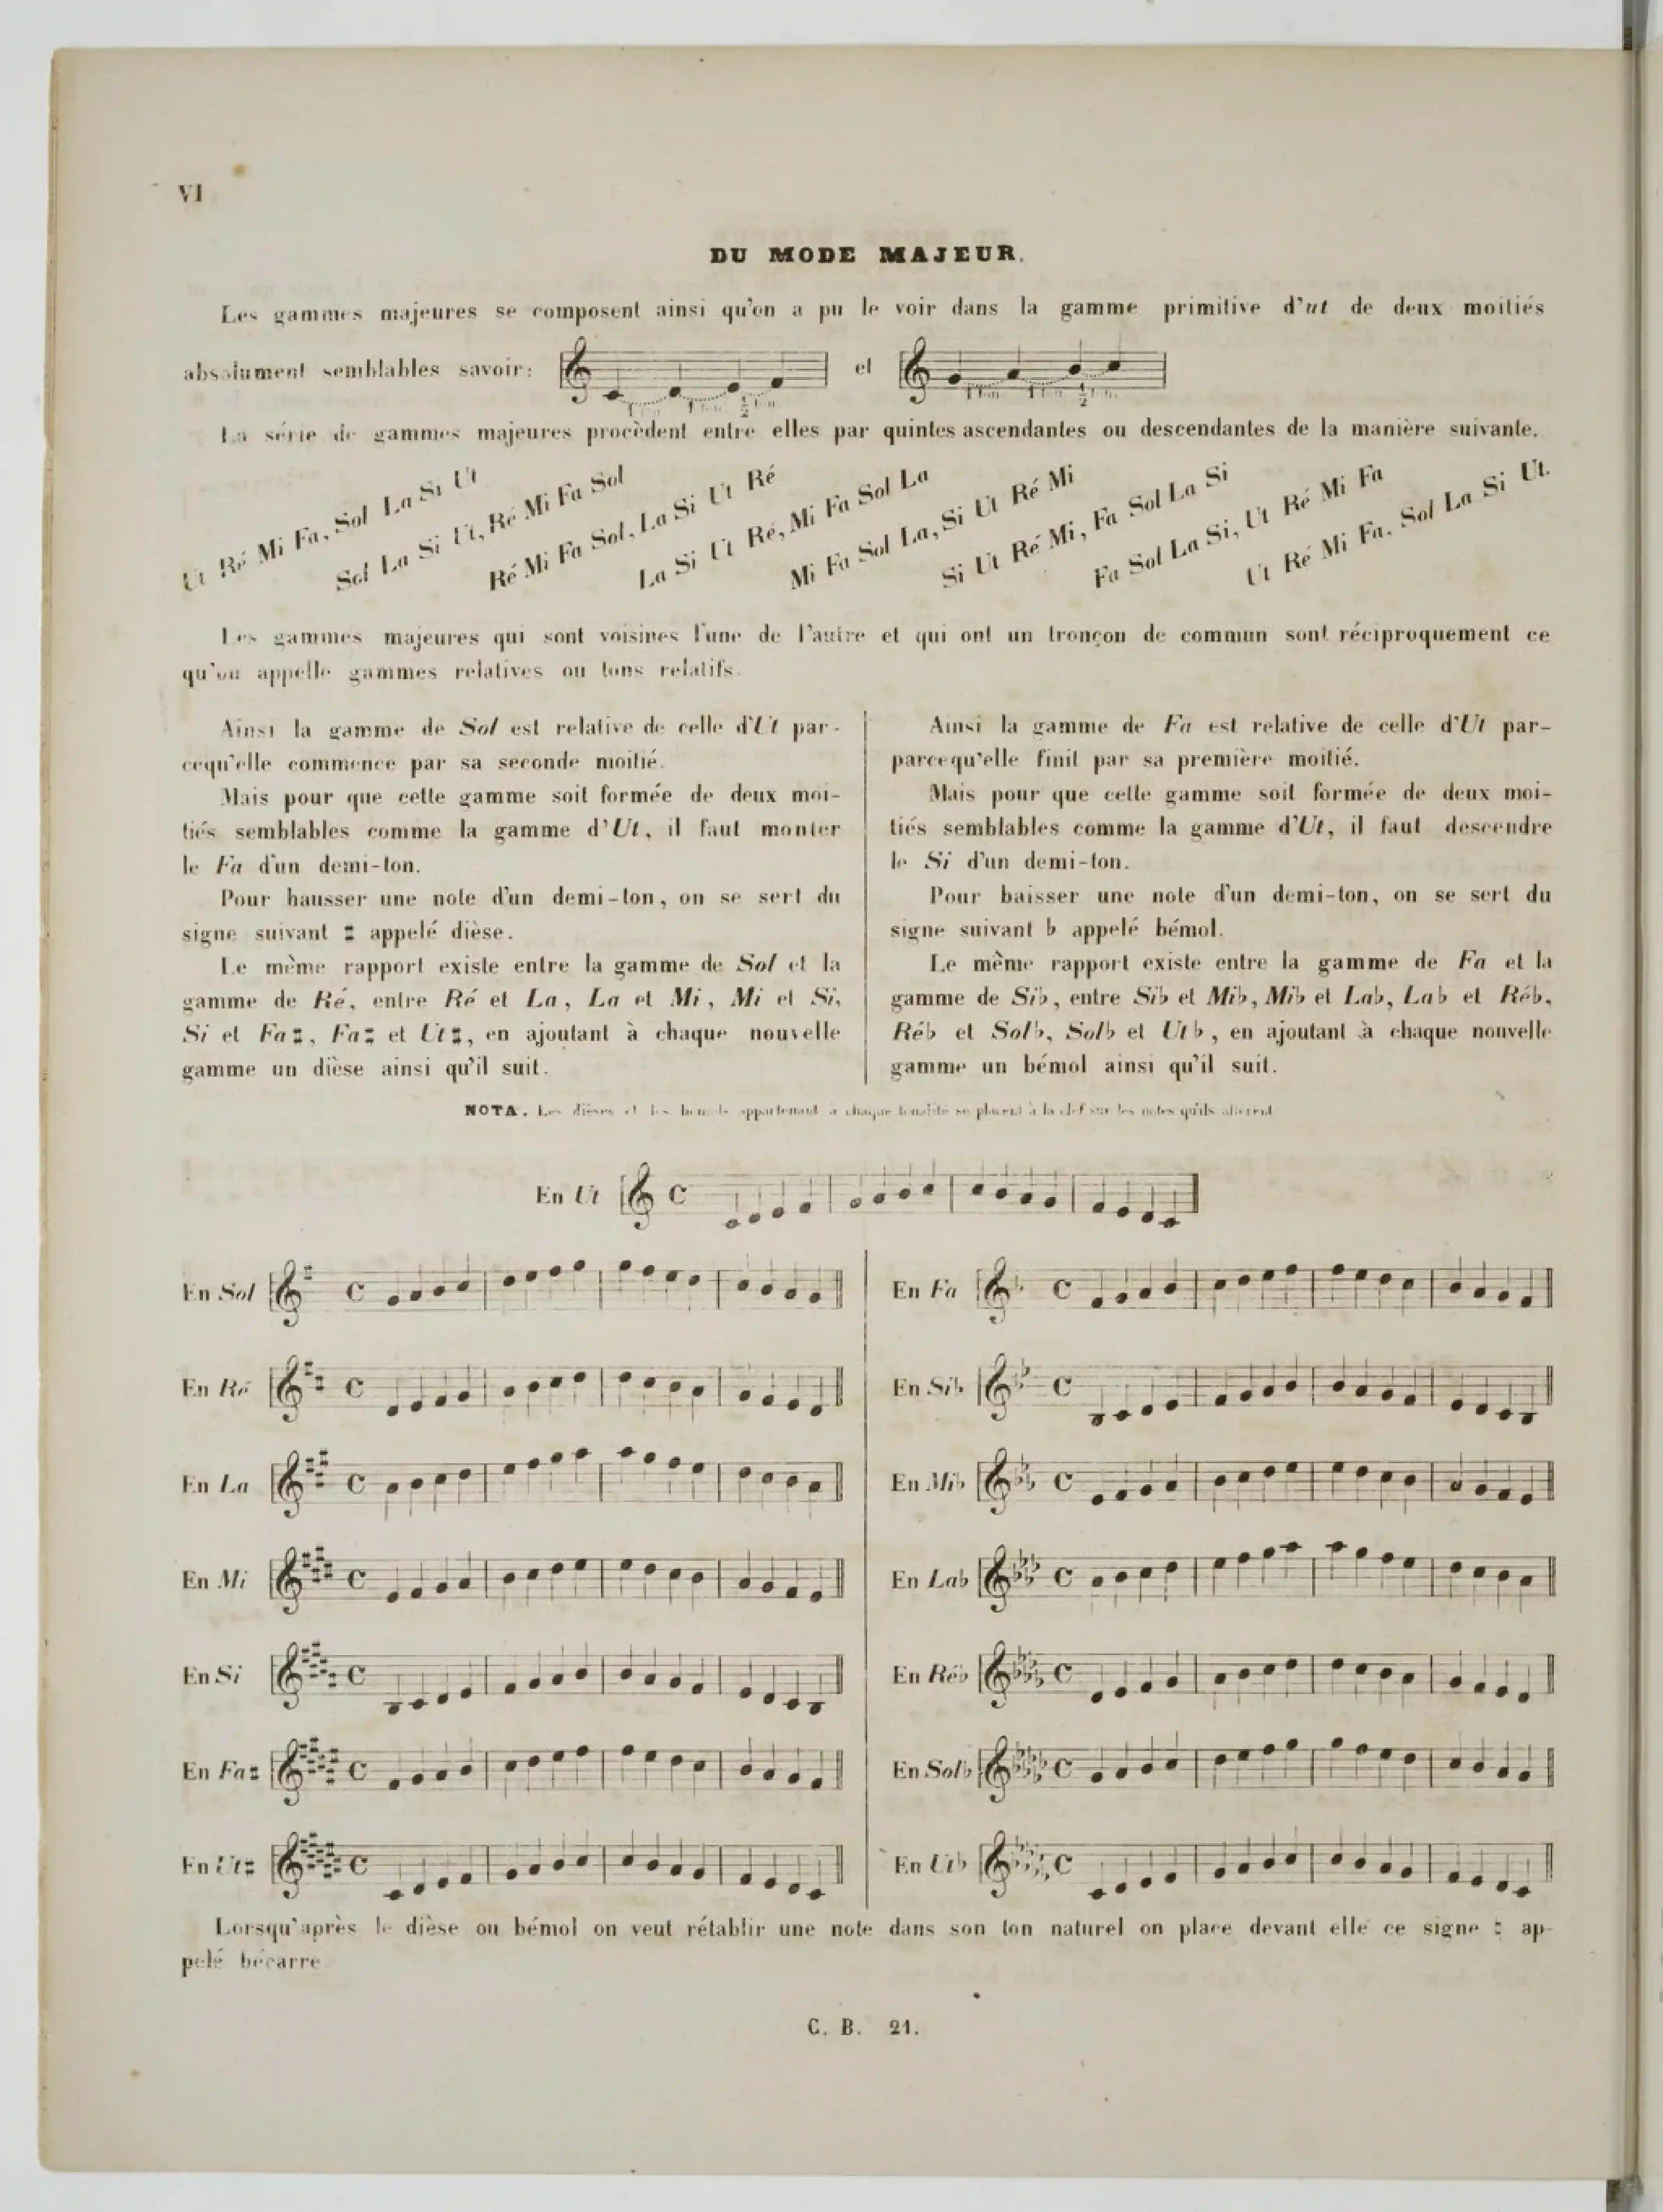 VI
DU MODE MAJEUR.
Les gammes majeures se composent ainsi qu'on a pu le voir dans la gamme primitive d'ut de deux moitiés
absolument semblables savoir: et
1 ton 1 ton ½ ton 1 ton 1 ton ½ ton
La série de gammes majeures procèdent entre elles par quintes ascendantes ou descendantes de la manière suivante.
Ut Ré Mi Fa, Sol La Si Ut
Sol La Si Ut, Ré Mi Fa Sol
Ré Mi Fa Sol, La Si Ut Ré
La Si Ut Ré, Mi Fa Sol La
Mi Fa Sol La, Si Ut Ré Mi
Si Ut Ré Mi, Fa Sol La Si
Fa Sol La Si, Ut Ré Mi Fa
Ut Ré Mi Fa. Sol La Si Ut.
Les gammes majeures qui sont voisines l'une de l'autre et qui ont un tronçon de commun sont réciproquement ce
qu'on appelle gammes relatives ou tons relatifs.
Ainsi la gamme de Sol est relative de celle d'Ut par-
cequ'elle commence par sa seconde moitié.
Mais pour que cette gamme soit formée de deux moi-
tiés semblables comme la gamme d'Ut, il faut monter
le Fa d'un demi-ton.
Pour hausser une note d'un demi-ton, on se sert du
signe suivant ♯ appelé dièse.
Le même rapport existe entre la gamme de Sol et la
gamme de Ré, entre Ré et La, La et Mi, Mi et Si,
Si et Fa♯, Fa♯ et Ut♯, en ajoutant à chaque nouvelle
gamme un dièse ainsi qu'il suit.
Ainsi la gamme de Fa est relative de celle d'Ut par-
parcequ'elle finit par sa première moitié.
Mais pour que cette gamme soit formée de deux moi-
tiés semblables comme la gamme d'Ut, il faut descendre
le Si d'un demi-ton.
Pour baisser une note d'un demi-ton, on se sert du
signe suivant b appelé bémol.
Le même rapport existe entre la gamme de Fa et la
gamme de Si♭, entre Si♭ et Mi♭, Mi♭ et La♭, La♭ et Ré♭,
Ré♭ et Sol♭, Sol♭ et Ut♭, en ajoutant à chaque nouvelle
gamme un bémol ainsi qu'il suit.
NOTA. Les dièses et les bémols appartenant à chaque tonalité se placent à la clef sur les notes qu'ils altèrent
En Ut
En Sol
En Ré
En La
En Mi
En Si
En Fa♯
En Ut♯
En Fa
En Si♭
En Mi♭
En La♭
En Ré♭
En Sol♭
En Ut♭
Lorsqu'après le dièse ou bémol on veut rétablir une note dans son ton naturel on place devant elle ce signe ♮ ap-
pelé bécarre
C. B. 21.